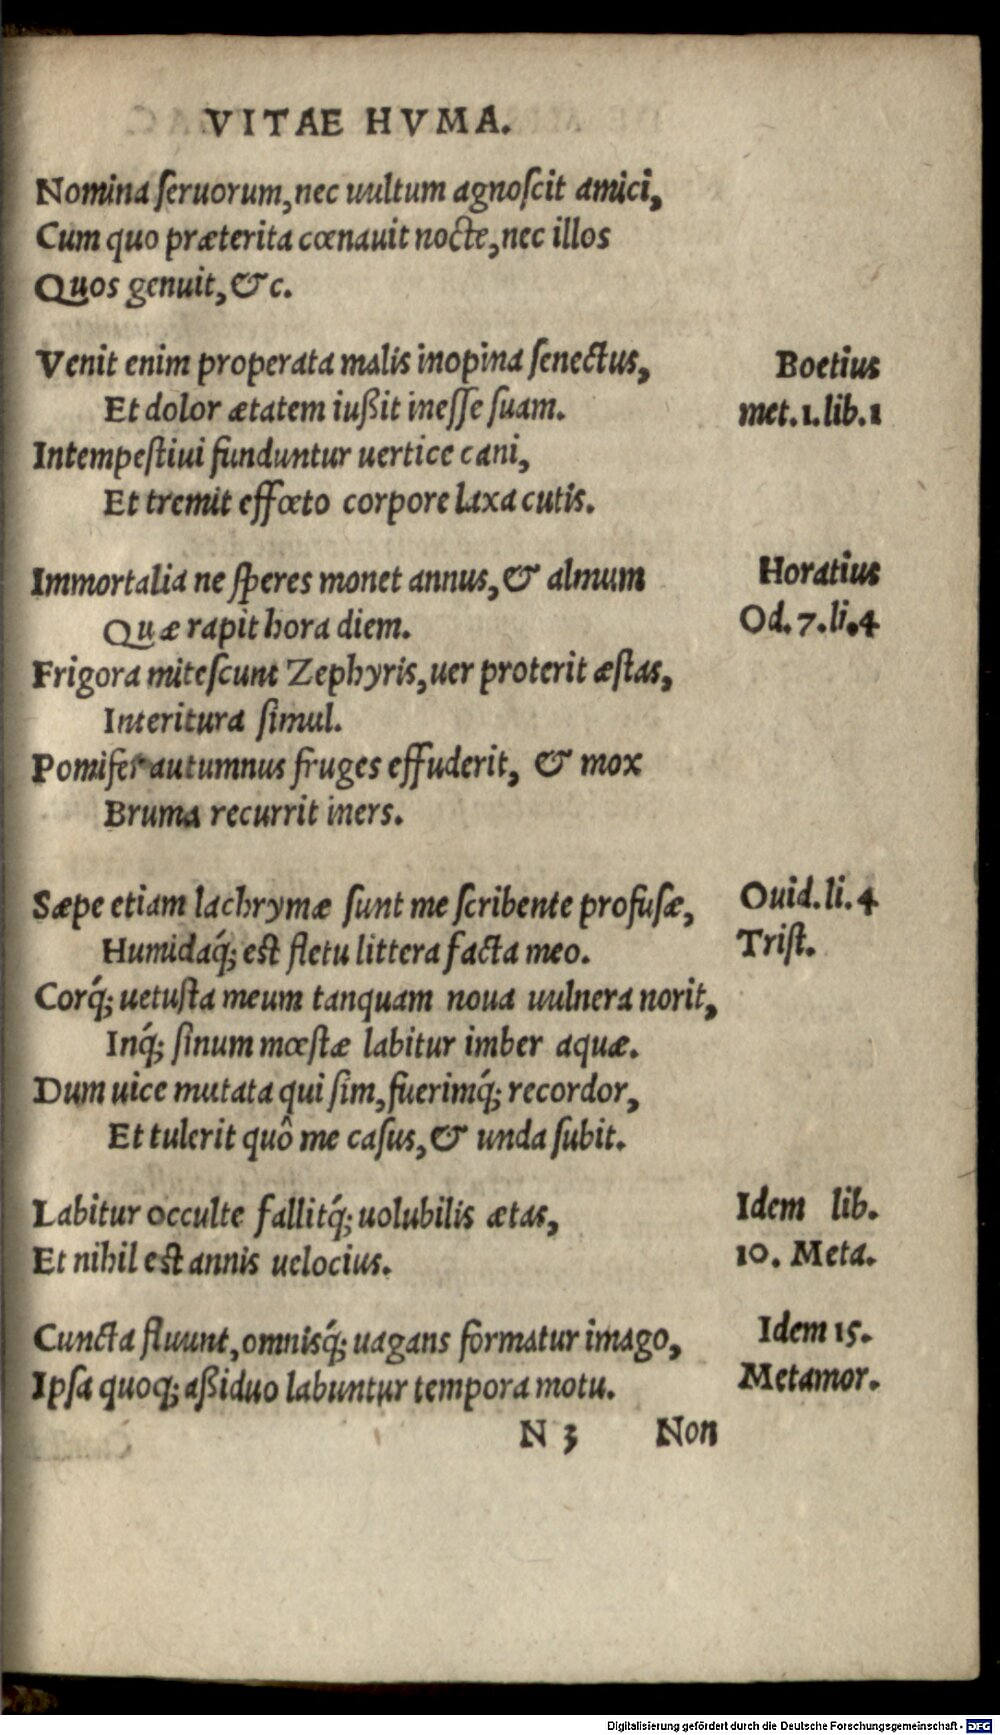 VITAE HVMA.
Nomina ſeruorum, nec uultum agnoſcit amici,
Cum quo præterita cœnauit nocte, nec illos
Quos genuit, & c.
Venit enim properata malis inopina ſenectus,
Boetius
Et dolor ætatem iußit ineſſe ſuam.
met. 1. lib. 1
Intempeſtiui funduntur uertice cani,
Et tremit effœto corpore laxa cutis.
Immortalia ne ſperes monet annus, & almum
Horatius
Quæ rapit hora diem.
Od. 7. li. 4
Frigora miteſcunt Zephyris, uer proterit æſtas,
Interitura ſimul.
Pomifer autumnus fruges effuderit, & mox
Bruma recurrit iners.
Sæpe etiam lachrymæ ſunt me ſcribente profuſæ,
Ouid. li. 4
Humidaq́; eſt fletu littera facta meo.
Triſt.
Corq́; uetuſta meum tanquam noua uulnera norit,
Inq́; ſinum mœſtæ labitur imber aquæ.
Dum uice mutata qui ſim, fuerimq́; recordor,
Et tulerit quô me caſus, & unda ſubit.
Labitur occulte fallitq́; uolubilis ætas,
Idem lib.
Et nihil eſt annis uelocius.
10. Meta.
Cuncta fluunt, omnisq́; uagans formatur imago,
Idem 15.
Ipſa quoq; aßiduo labuntur tempora motu.
Metamor.
N 3 Non
Digitalisierung gefördert durch die Deutsche Forschungsgemeinschaft - DFG